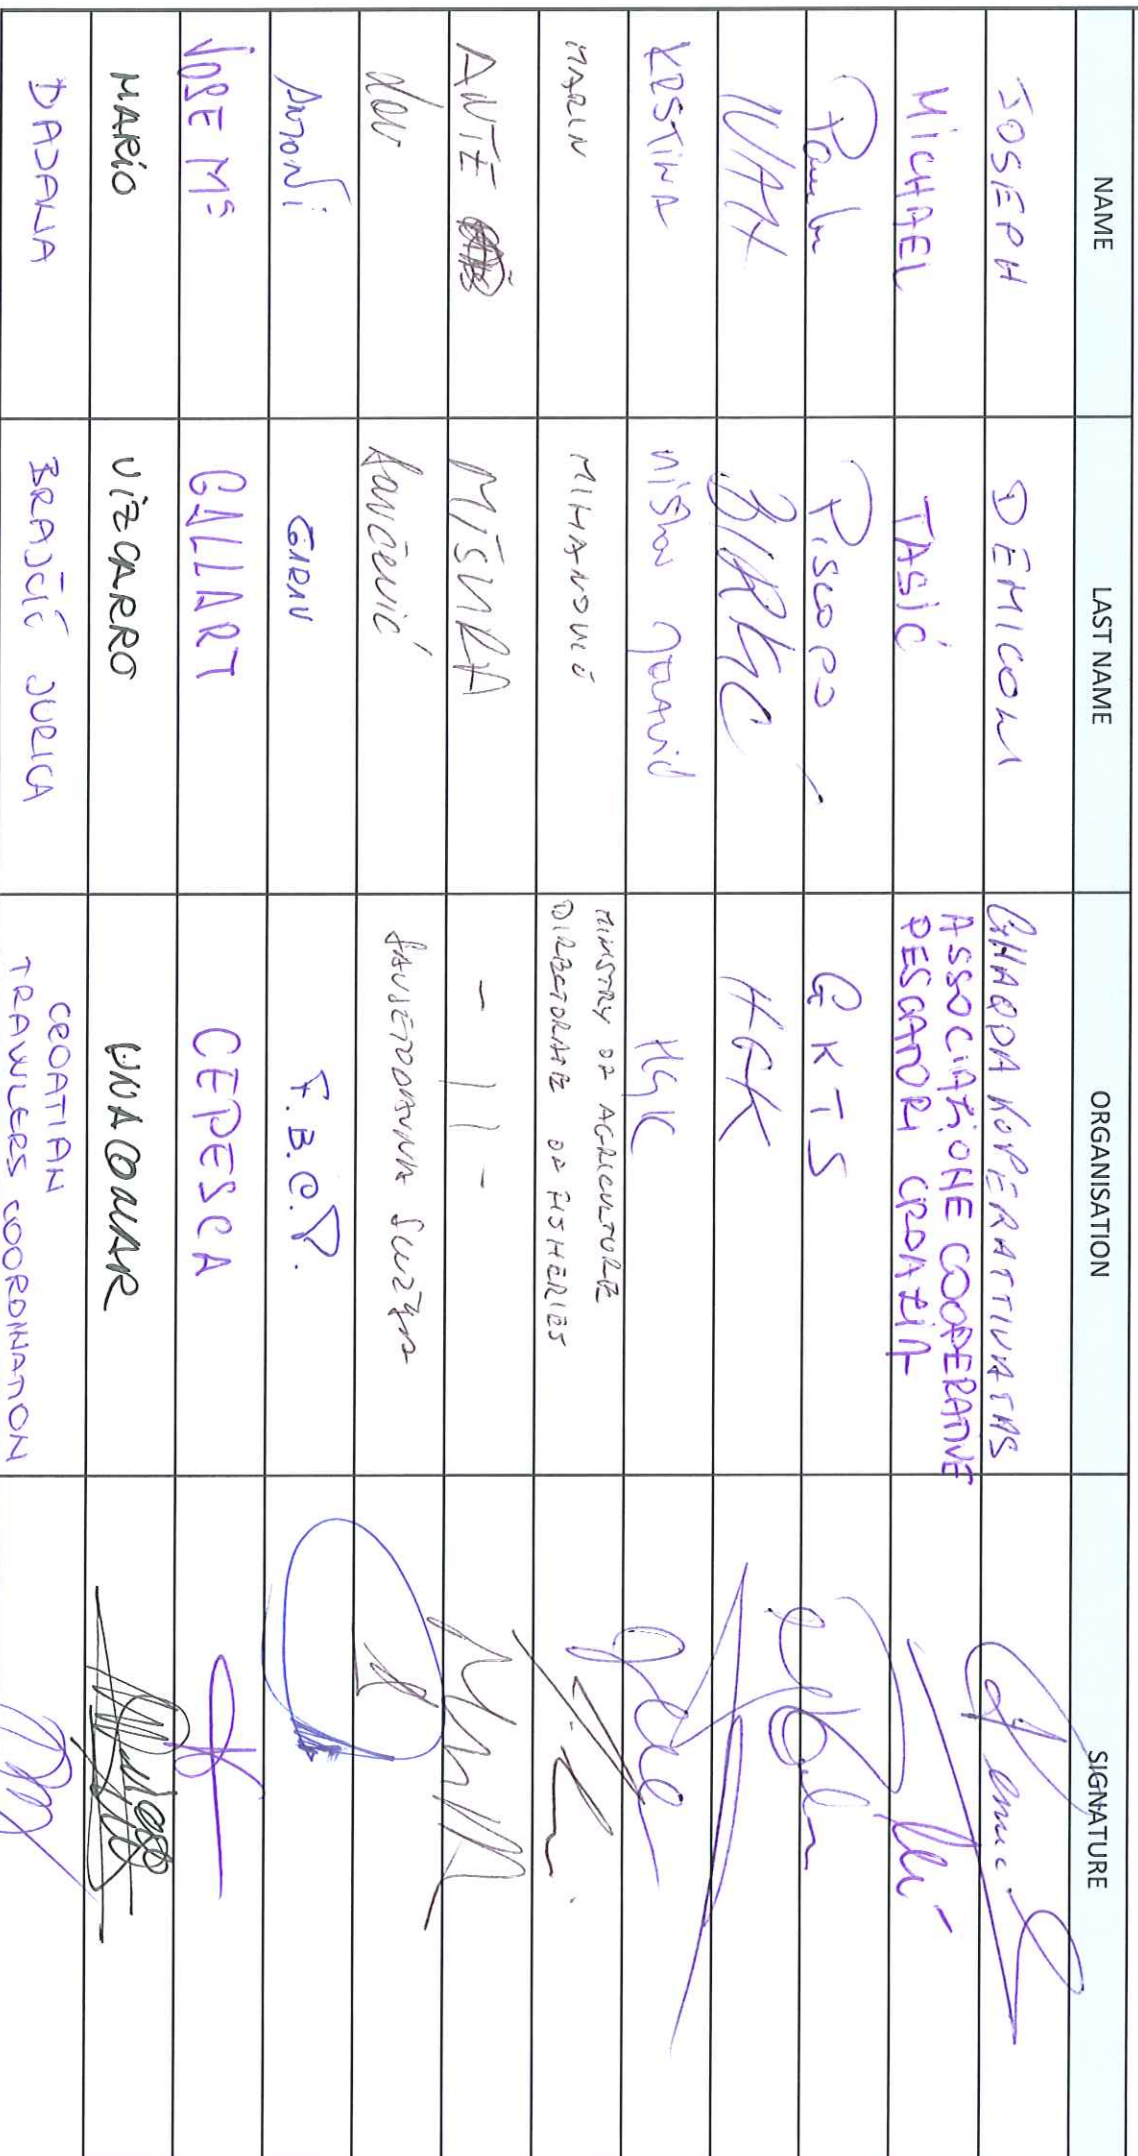 NAME LAST NAME ORGANISATION SIGNATURE
JOSEPH DEMICOLI GHAQDA KOPERATTIVA TAS
MICHAEL TASIĆ ASSOCIAZIONE COOPERATIVE
PESCATORI CROAZIA
Piscopo GKTS
IVAN BIRKIĆ HGK
KRSTINA HGK
MARIN MIHANOVIĆ MINISTRY OF AGRICULTURE
DIRECTORATE OF FISHERIES
ANTE MIŠURA - 11 -
Lovčević SAVJETODAVNA SLUŽBA
ANTONI GARAU F.B.C.P.
JOSE Mª GALLART CEPESCA
MARIO VIZCARRO UNACOMAR
DADANA BRAJČIĆ JURICA CROATIAN
TRAWLERS COORDINATION